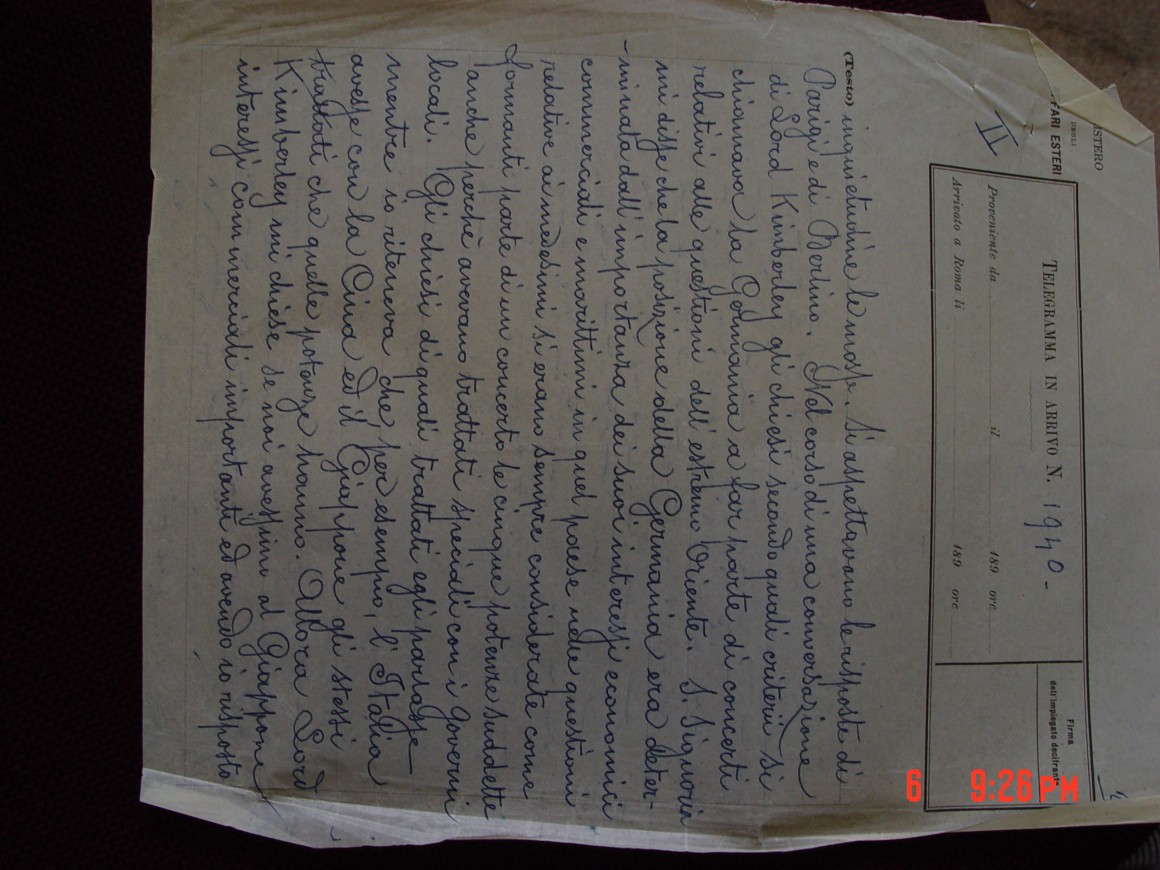 ISTERO
DEGLI
FFARI ESTERI
II
TELEGRAMMA IN ARRIVO N. 1940-
Proveniente da il 189 ore
Arrivato a Roma li 189 ore
Firma
dell'impiegato decifrante
(Testo) inquietudine le mosse. Si aspettavano le risposte di
Parigi e di Berlino. Nel corso di una conversazione
di Lord Kimberley gli chiesi secondo quali criterii si
chiamava la Germania a far parte di concerti
relativi alle questioni dell'estremo Oriente. S. Signoria
mi disse che la posizione della Germania era deter-
-minata dall'importanza dei suoi interessi economici
commerciali e marittimi in quel paese nelle questioni
relative ai medesimi si erano sempre considerate come
formanti parte di un concerto le cinque potenze suddette
anche perchè avevano trattati speciali con i Governi
locali. Gli chiesi di quali trattati egli parlasse
mentre io riteneva che, per esempio, l'Italia
avesse con la Cina ed il Giappone gli stessi
trattati che quelle potenze hanno. Allora Lord
Kimberley mi chiese se noi avessimo al Giappone
interessi commerciali importanti ed avendo io risposto
6 9:26 PM